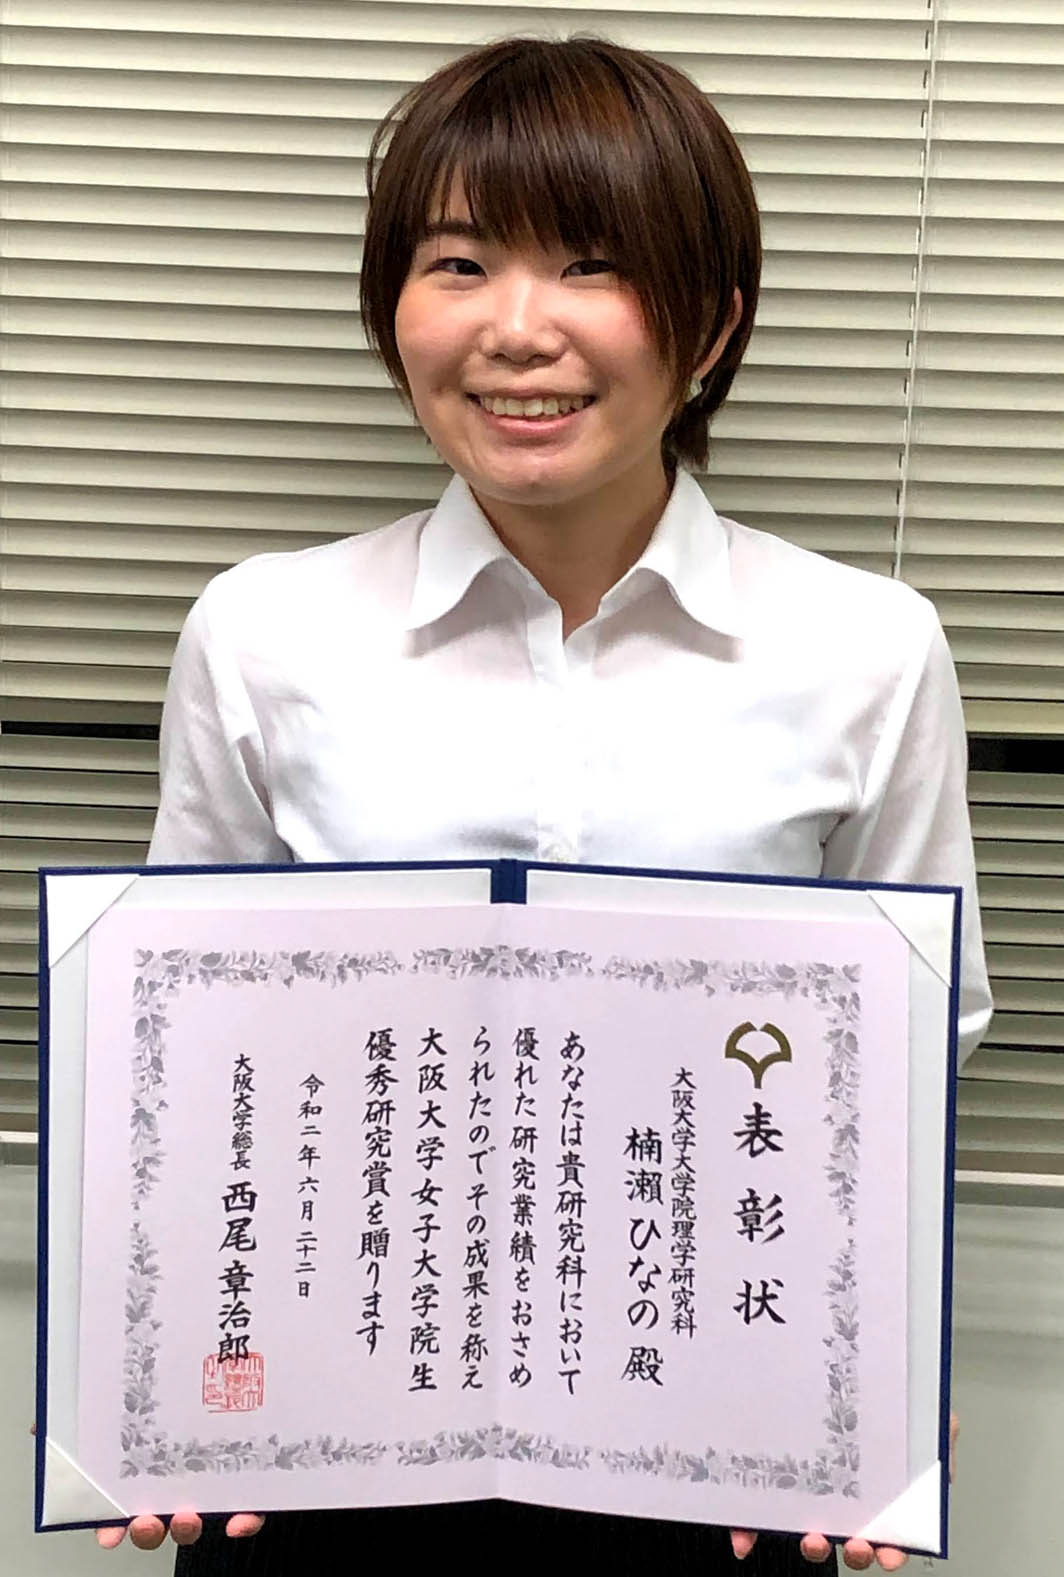 表彰状
大阪大学大学院理学研究科
楠瀬ひなの殿
あなたは貴研究科において
優れた研究業績をおさめ
られたのでその成果を称え
大阪大学女子大学院生
優秀研究賞を贈ります
令和二年六月二十二日
大阪大学総長 西尾章治郎